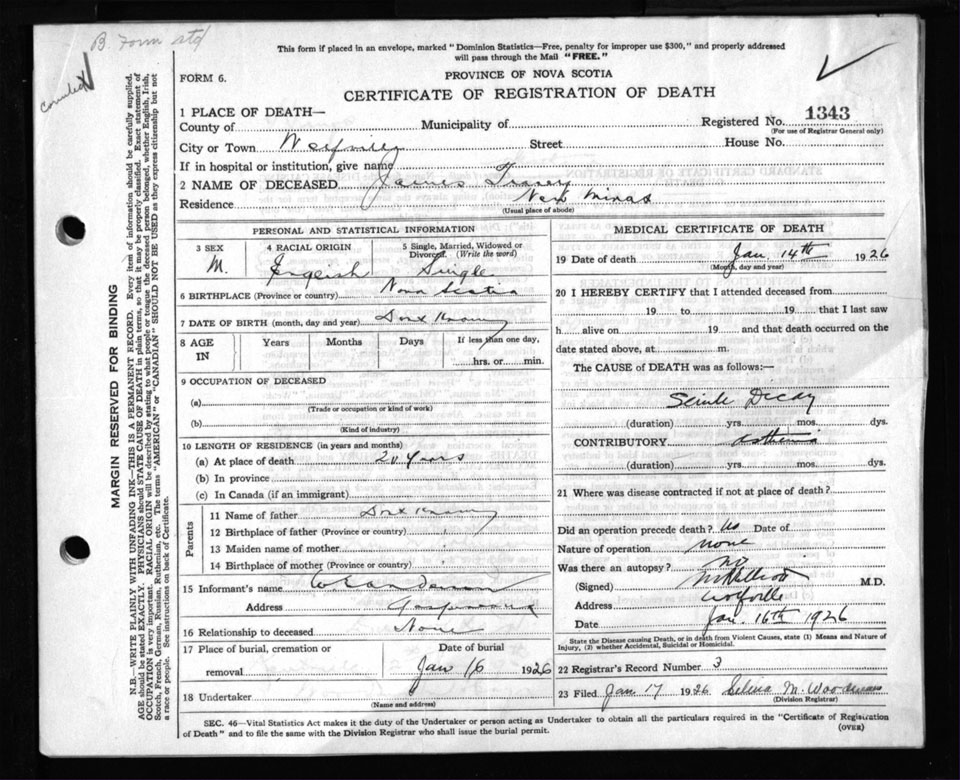 B. Form std
This form if placed in an envelope, marked "Dominion Statistics—Free, penalty for improper use $300," and properly addressed
will pass through the Mail "FREE."
FORM 6.
PROVINCE OF NOVA SCOTIA
CERTIFICATE OF REGISTRATION OF DEATH
1 PLACE OF DEATH—
Registered No. 1343
(For use of Registrar General only)
County of
Municipality of
City or Town
Street
House No.
If in hospital or institution, give name
2 NAME OF DECEASED James
Residence New Minas
(Usual place of abode)
PERSONAL AND STATISTICAL INFORMATION
3 SEX
M.
4 RACIAL ORIGIN
English
5 Single, Married, Widowed or
Divorced. (Write the word)
Single
6 BIRTHPLACE (Province or country) Nova Scotia
7 DATE OF BIRTH (month, day and year) Dont Know
8 AGE
IN
Years
Months
Days
If less than one day,
hrs. or min.
9 OCCUPATION OF DECEASED
(a)
(Trade or occupation or kind of work)
(b)
(Kind of industry)
10 LENGTH OF RESIDENCE (in years and months)
(a) At place of death 20 Years
(b) In province
(c) In Canada (if an immigrant)
Parents
11 Name of father Dont Know
12 Birthplace of father (Province or country)
13 Maiden name of mother
14 Birthplace of mother (Province or country)
15 Informant's name
Address
16 Relationship to deceased None
17 Place of burial, cremation or
removal
Date of burial
Jan 16 1926
18 Undertaker
(Name and address)
MEDICAL CERTIFICATE OF DEATH
19 Date of death Jan. 14th 1926
(Month, day and year)
20 I HEREBY CERTIFY that I attended deceased from
19 to 19 that I last saw
h alive on 19 and that death occurred on
date stated above, at m.
The CAUSE of DEATH was as follows:—
Senile Decay
(duration) yrs. mos. dys.
CONTRIBUTORY
(duration) yrs. mos. dys.
21 Where was disease contracted if not at place of death?
Did an operation precede death? No Date of
Nature of operation none
Was there an autopsy? no
(Signed) M.D.
Address Wolfville
Date Jan. 16th 1926
State the Disease causing Death, or in death from Violent Causes, state (1) Means and Nature of
Injury, (2) whether Accidental, Suicidal or Homicidal.
22 Registrar's Record Number 3
23 Filed Jan 17 1926 Selina M.
(Division Registrar)
SEC. 46—Vital Statistics Act makes it the duty of the Undertaker or person acting as Undertaker to obtain all the particulars required in the "Certificate of Registration
of Death" and to file the same with the Division Registrar who shall issue the burial permit.
(OVER)
MARGIN RESERVED FOR BINDING
N.B.—WRITE PLAINLY WITH UNFADING INK—THIS IS A PERMANENT RECORD. Every item of information should be carefully supplied.
AGE should be stated EXACTLY. PHYSICIANS should STATE CAUSE OF DEATH in plain terms, so that it may be properly classified. Exact statement of
OCCUPATION is very important. RACIAL ORIGIN will be described by stating to what people or tongue the deceased person belonged, whether English, Irish,
Scotch, French, German, Russian, Ruthenian, etc. The terms "AMERICAN" or "CANADIAN" SHOULD NOT BE USED as they express citizenship but not
a race or people. See instructions on back of Certificate.